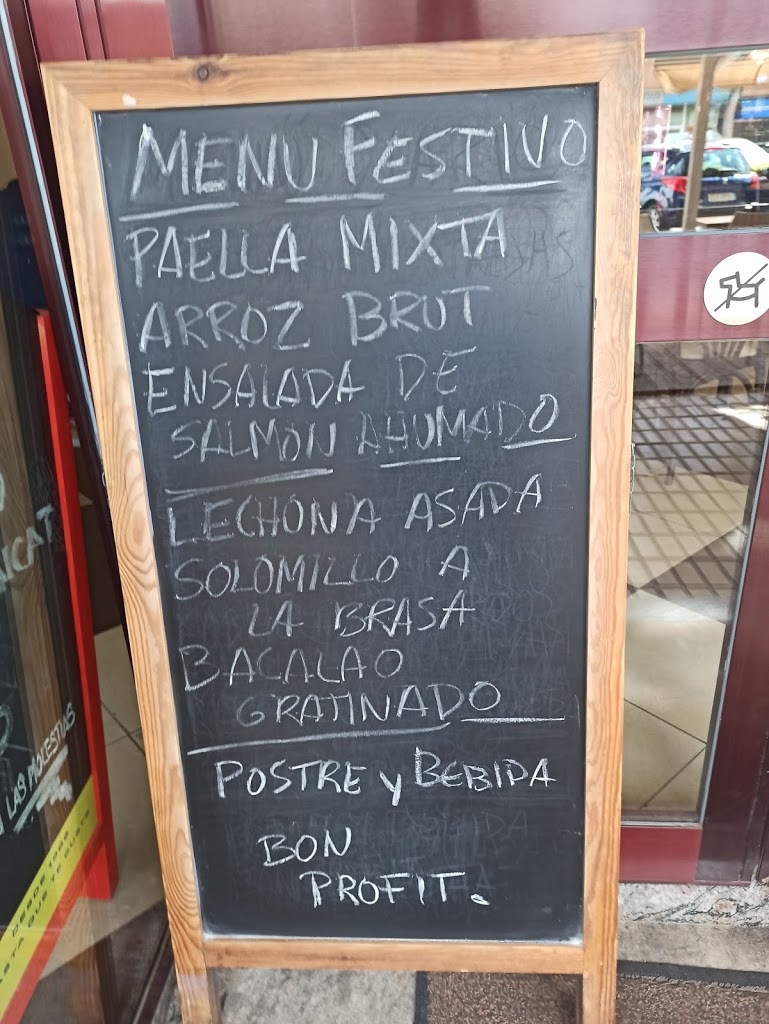 MENU FESTIVO
PAELLA MIXTA
ARROZ BRUT
ENSALADA DE
SALMON AHUMADO
LECHONA ASADA
SOLOMILLO A
LA BRASA
BACALAO
GRATINADO
POSTRE y BEBIDA
BON
PROFIT.
LAS MOLESTIAS
DESDE 1989